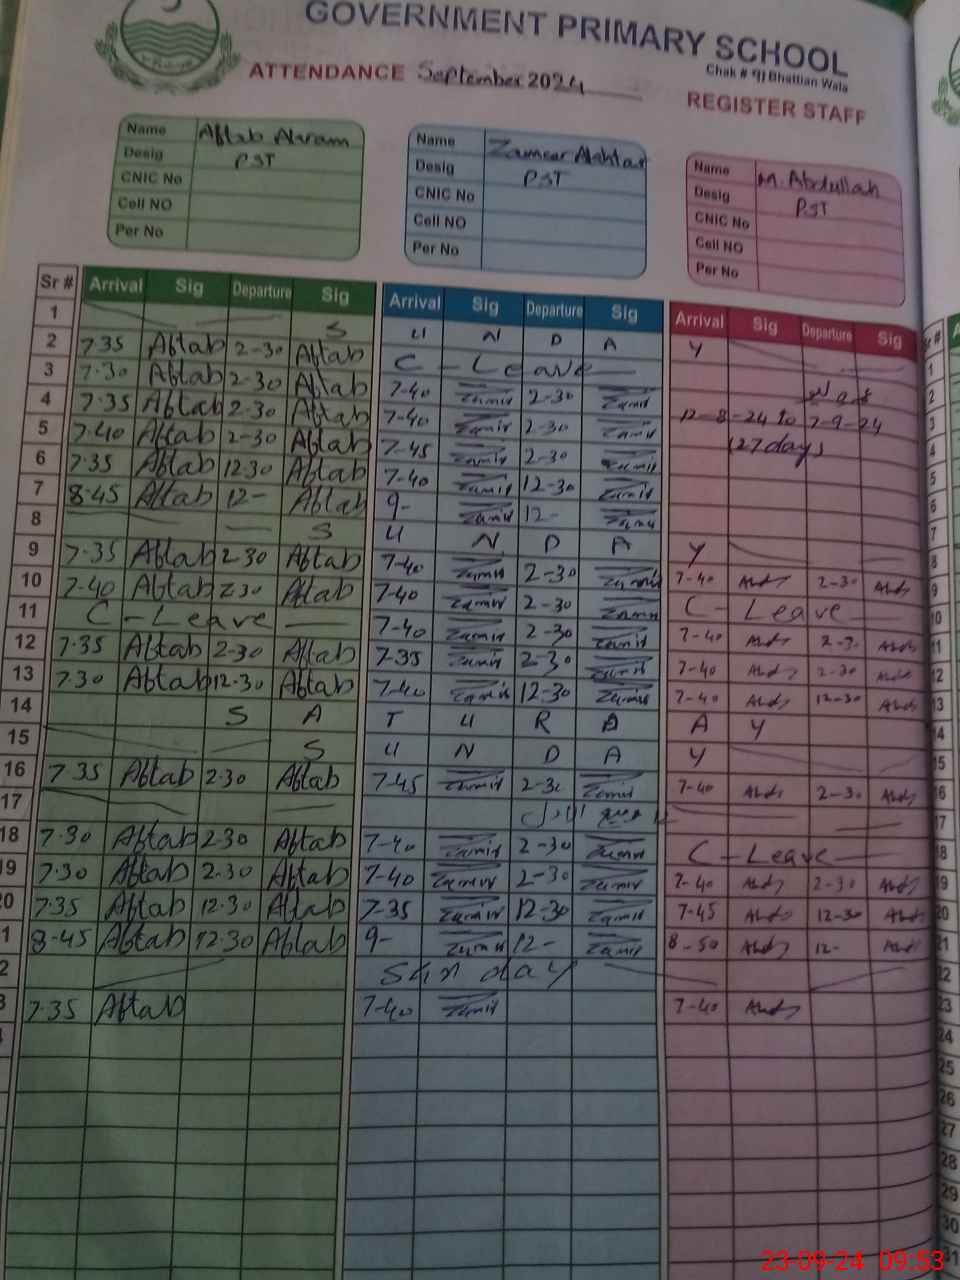 GOVERNMENT PRIMARY SCHOOL
Chak # 91 Bhattian Wala
ATTENDANCE September 2024
REGISTER STAFF
Name Aftab Akram
Desig PST
CNIC No
Cell NO
Per No
Name Zameer Akhtar
Desig PST
CNIC No
Cell NO
Per No
Name M. Abdullah
Desig PST
CNIC No
Cell NO
Per No
Sr # Arrival Sig Departure Sig Arrival Sig Departure Sig Arrival Sig Departure Sig
1 S U N D A Y
2 7-35 Aftab 2-30 Aftab C - Leave
3 7-30 Aftab 2-30 Aftab 7-40 Zamir 2-30 Zamir
4 7-35 Aftab 2-30 Aftab 7-40 Zamir 2-30 Zamir 12-8-24 to 7-9-24
5 7-40 Aftab 2-30 Aftab 7-45 Zamir 2-30 Zamir (27 days
6 7-35 Aftab 12-30 Aftab 7-40 Zamir 12-30 Zamir
7 8-45 Aftab 12- Aftab 9- Zamir 12- Zamir
8 S U N D A Y
9 7-35 Aftab 2-30 Aftab 7-40 Zamir 2-30 Zamir 7-40 2-30
10 7-40 Aftab 2-30 Aftab 7-40 Zamir 2-30 Zamir C - Leave
11 C - Leave 7-40 Zamir 2-30 Zamir 7-40 2-30
12 7-35 Aftab 2-30 Aftab 7-35 Zamir 2-30 Zamir 7-40 2-30
13 7-30 Aftab 12-30 Aftab 7-40 Zamir 12-30 Zamir 7-40 12-30
14 S A T U R D A Y
15 S U N D A Y
16 7-35 Aftab 2-30 Aftab 7-45 Zamir 2-30 Zamir 7-40 2-30
17 ربیع الاول
18 7-30 Aftab 2-30 Aftab 7-40 Zamir 2-30 Zamir C - Leave
19 7-30 Aftab 2-30 Aftab 7-40 Zamir 2-30 Zamir 7-40 2-30
20 7-35 Aftab 12-30 Aftab 7-35 Zamir 12-30 Zamir 7-45 12-30
21 8-45 Aftab 12-30 Aftab 9- Zamir 12- Zamir 8-50 12-
22 Sunday
23 7-35 Aftab 7-40 Zamir 7-40
24
25
26
27
28
29
30
23-09-24 09:53